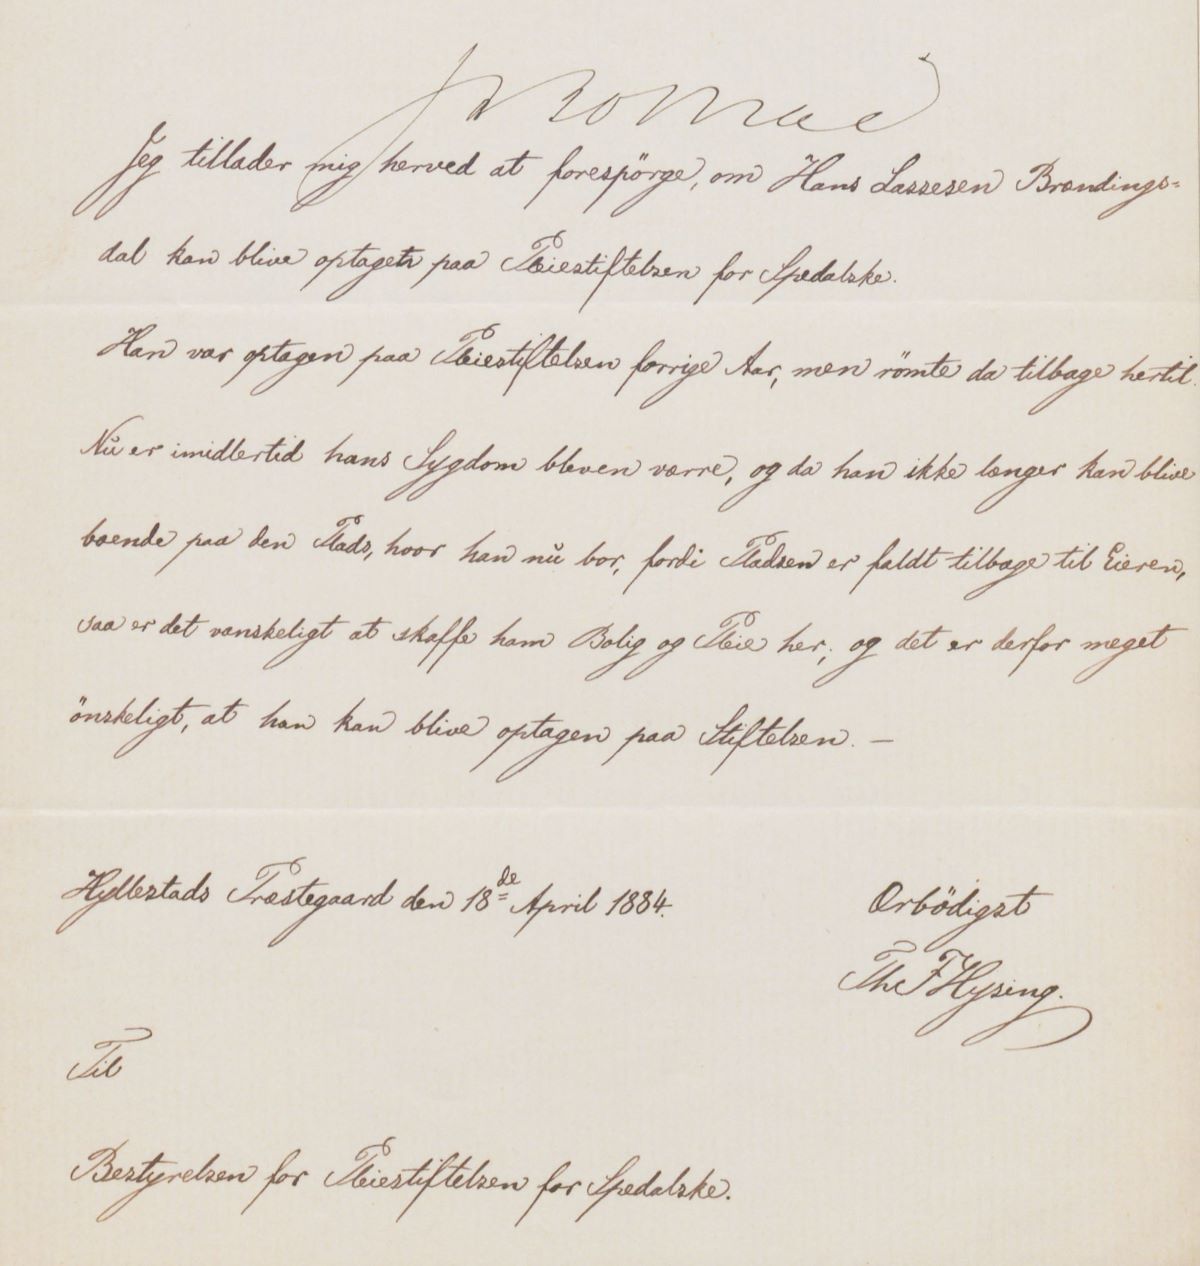 Jeg tillader mig herved at forespörge, om Hans Lassesen Brændings-
dal kan blive optagen paa Pleiestiftelsen for Spedalske.
Han var optagen paa Pleiestiftelsen forrige Aar, men römte da tilbage hertil.
Nu er imidlertid hans Sygdom bleven værre, og da han ikke længer kan blive
boende paa den Plads, hvor han nu bor, fordi Pladsen er faldt tilbage til Eieren,
saa er det vanskeligt at skaffe ham Bolig og Pleie her; og det er derfor meget
önskeligt, at han kan blive optagen paa Stiftelsen. —
Hyllestads Præstegaard den 18de April 1884.
Ærbödigst
Th. F Hysing.
Til
Bestyrelsen for Pleiestiftelsen for Spedalske.